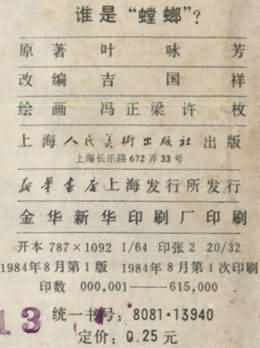 谁是“螳螂”？
原著 叶咏芳
改编 吉国祥
绘画 冯正梁 许枚
上海人民美术出版社出版
上海长乐路672弄33号
新华书店上海发行所发行
金华新华印刷厂印刷
开本 787×1092 1/64 印张 2 20/32
1984年8月第1版 1984年8月第1次印刷
印数 000,001——615,000
13
统一书号：8081·13940
定价：0.25元